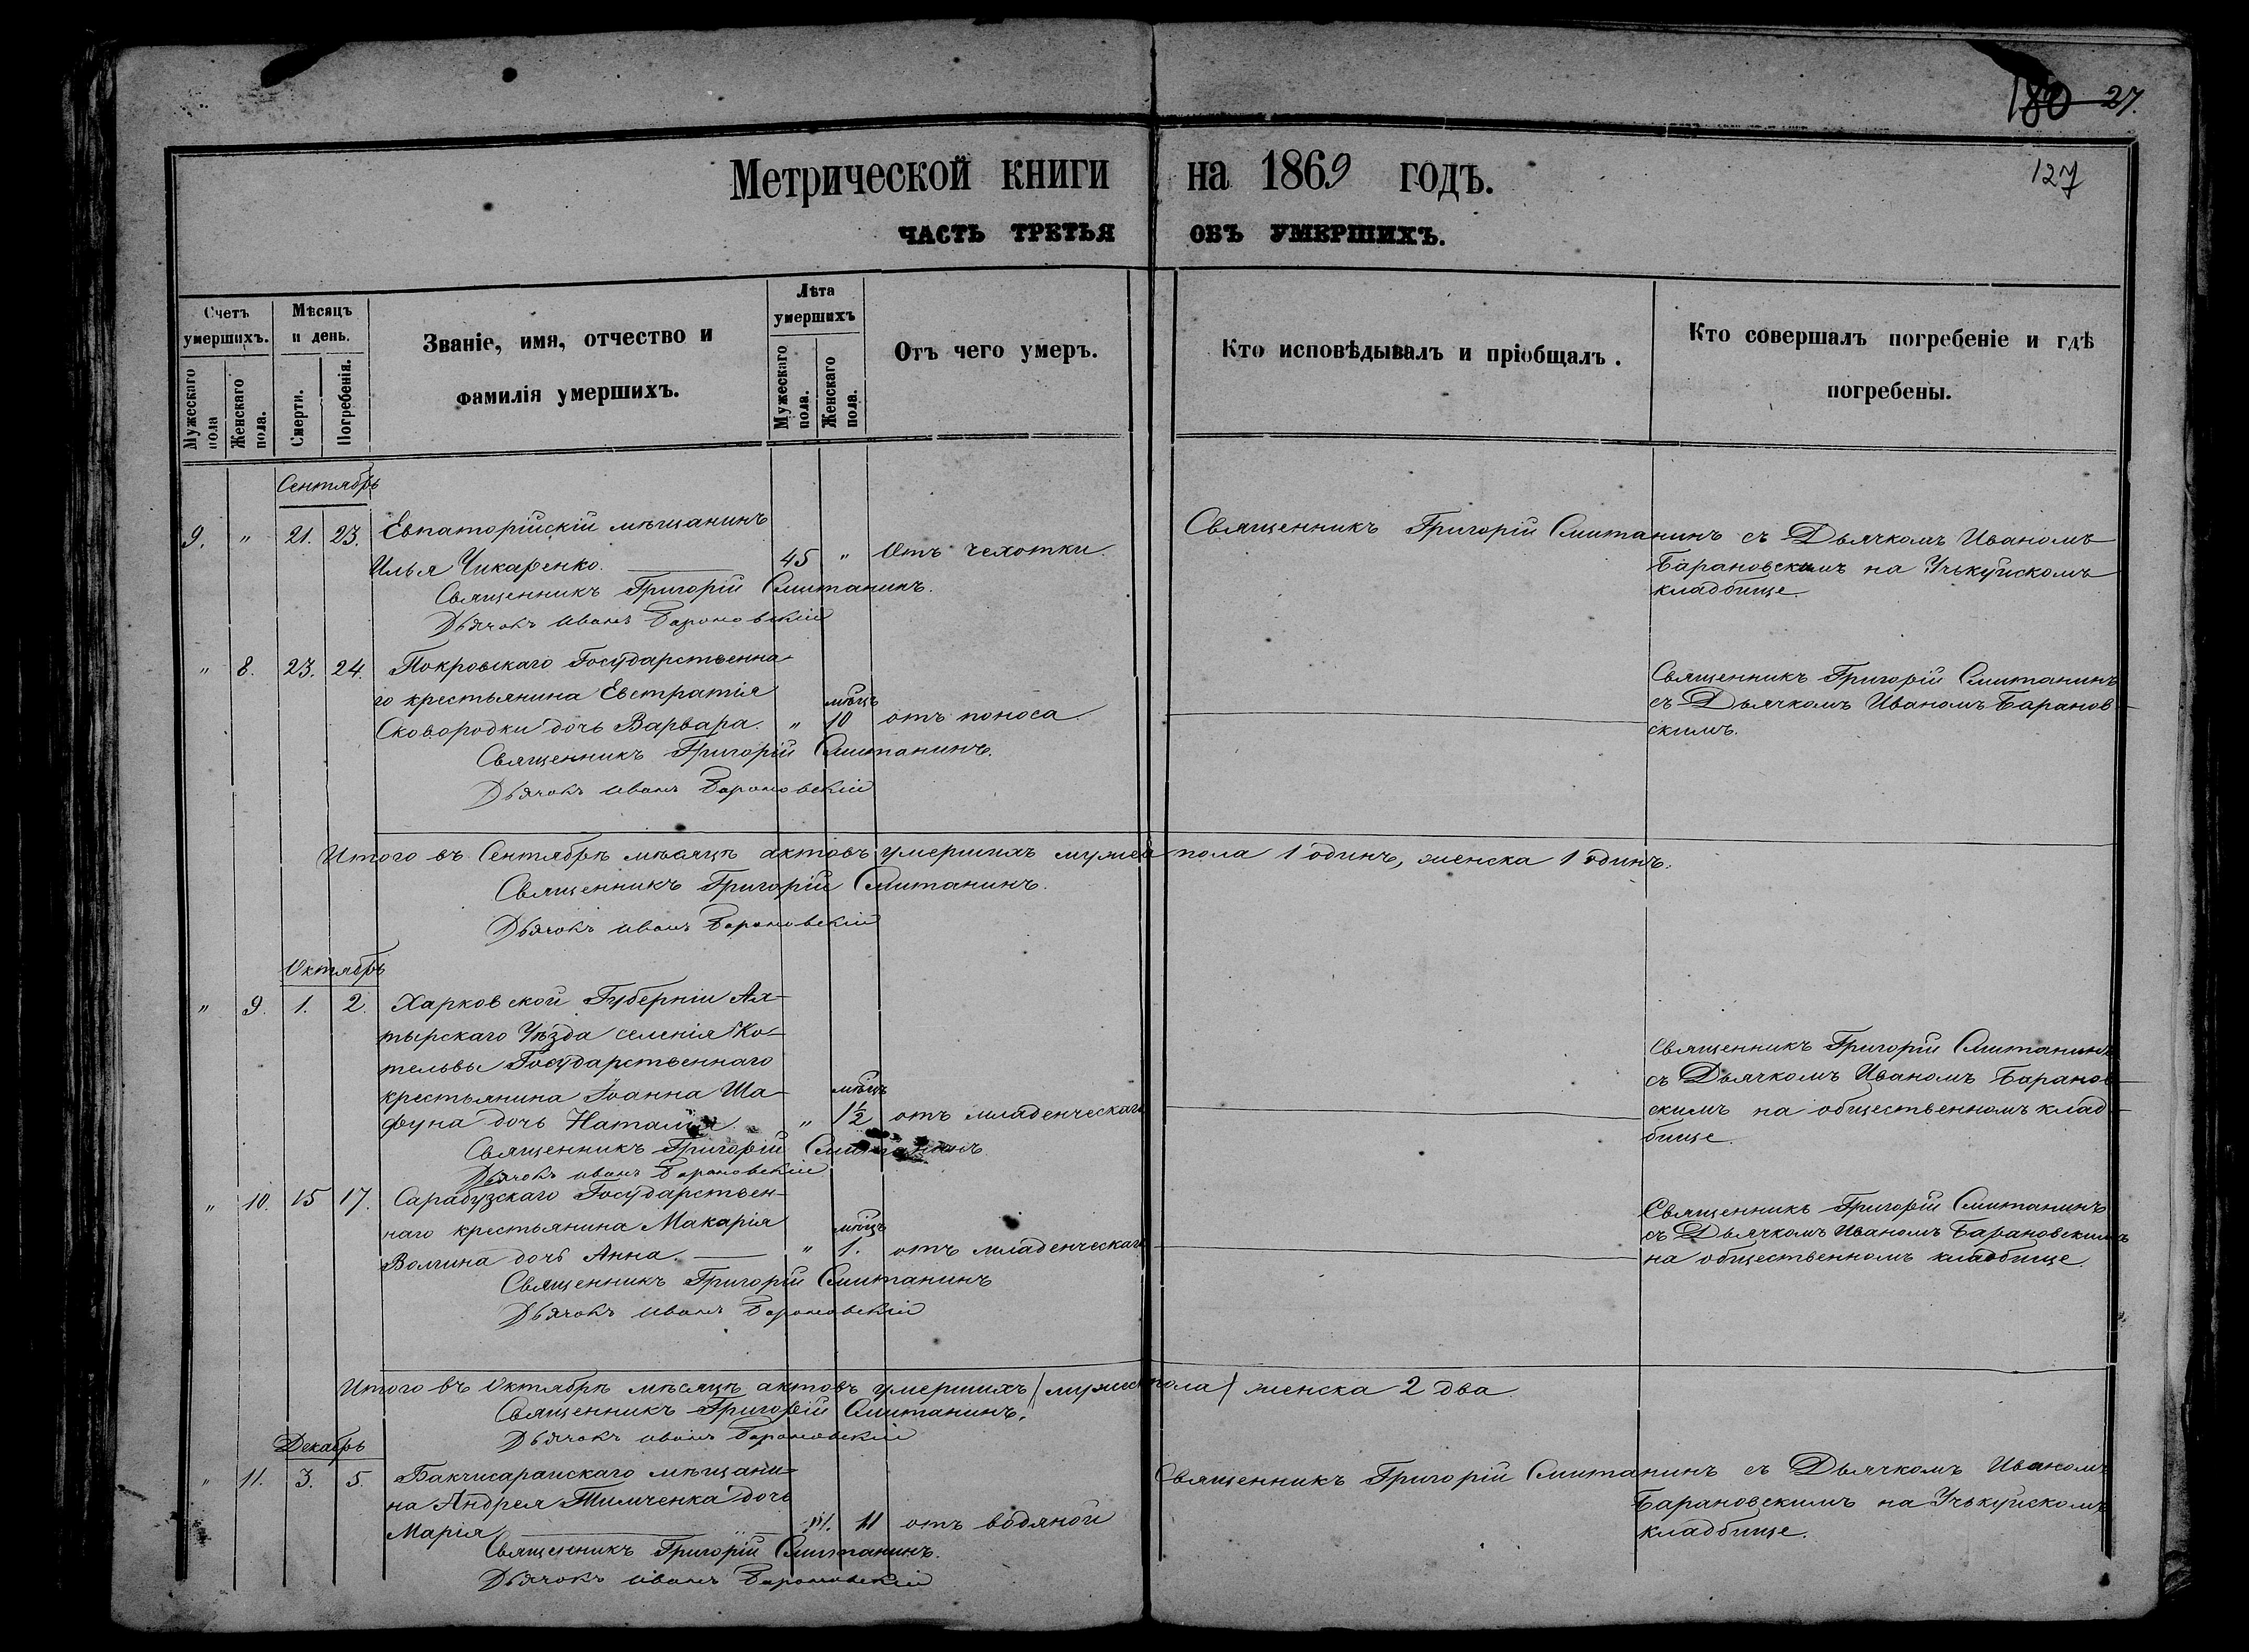 180 27.
127
Метрической книги на 1869 годъ.
ЧАСТЬ ТРЕТЬЯ ОБЪ УМЕРШИХЪ.
Счетъ умершихъ.
Мужескаго пола
Женскаго пола.
Мѣсяцъ и день.
Смерти.
Погребенія.
Званіе, имя, отчество и
фамилія умершихъ.
Лѣта умершихъ
Мужескаго пола.
Женскаго пола.
Отъ чего умеръ.
Кто исповѣдывалъ и пріобщалъ.
Кто совершалъ погребеніе и гдѣ
погребены.
Сентябрь
9. " 21. 23. Евпаторійскій мѣщанинъ
Илья Чикаренко. 45 " Отъ чехотки.
Священникъ Григорій Смитанинъ съ Дьячкомъ Иваномъ
Барановскимъ на Учькуйскомъ
кладбище.
Священникъ Григорій Смитанинъ.
Дьячокъ Иванъ Барановскій
" 8. 23. 24. Покровскаго Государственна-
го крестьянина Евстратія мѣцъ
Сковородки дочь Варвара. " 10 отъ поноса.
Священникъ Григорій Смитанинъ
съ Дьячкомъ Иваномъ Баранов-
скимъ.
Священникъ Григорій Смитанинъ.
Дьячокъ Иванъ Барановскій
Итого въ Сентябрѣ мѣсяцѣ актовъ умершихъ мужеска пола 1 одинъ, женска 1 одинъ.
Священникъ Григорій Смитанинъ.
Дьячокъ Иванъ Барановскій
Октябрь
" 9. 1. 2. Харковской Губерніи Ах-
тырскаго Уѣзда селенія Ко-
тельвы Государственнаго
крестьянина Іоанна Ша- мѣцъ
фуна дочь Наталія. " 1½ отъ младенческаго
Священникъ Григорій Смитанинъ
съ Дьячкомъ Иваномъ Баранов-
скимъ на общественномъ клад-
бище.
Священникъ Григорій Смитанинъ
Дьячокъ Иванъ Барановскій
" 10. 15 17. Сарабузскаго Государствен-
наго крестьянина Макарія мѣцъ
Волгина дочь Анна. " 1. отъ младенческаго
Священникъ Григорій Смитанинъ
съ Дьячкомъ Иваномъ Барановскимъ
на общественномъ кладбище.
Священникъ Григорій Смитанинъ
Дьячокъ Иванъ Барановскій
Итого въ Октябрѣ мѣсяцѣ актовъ умершихъ /мужеск пола/ женска 2 два
Священникъ Григорій Смитанинъ.
Дьячокъ Иванъ Барановскій
Декабрь
" 11. 3. 5. Бакчисарайскаго мѣщани-
на Андрея Тимченка дочь
Марія 11 отъ водяной
Священникъ Григорій Смитанинъ съ Дьячкомъ Иваномъ
Барановскимъ на Учькуйскомъ
кладбище.
Священникъ Григорій Смитанинъ.
Дьячокъ Иванъ Барановскій